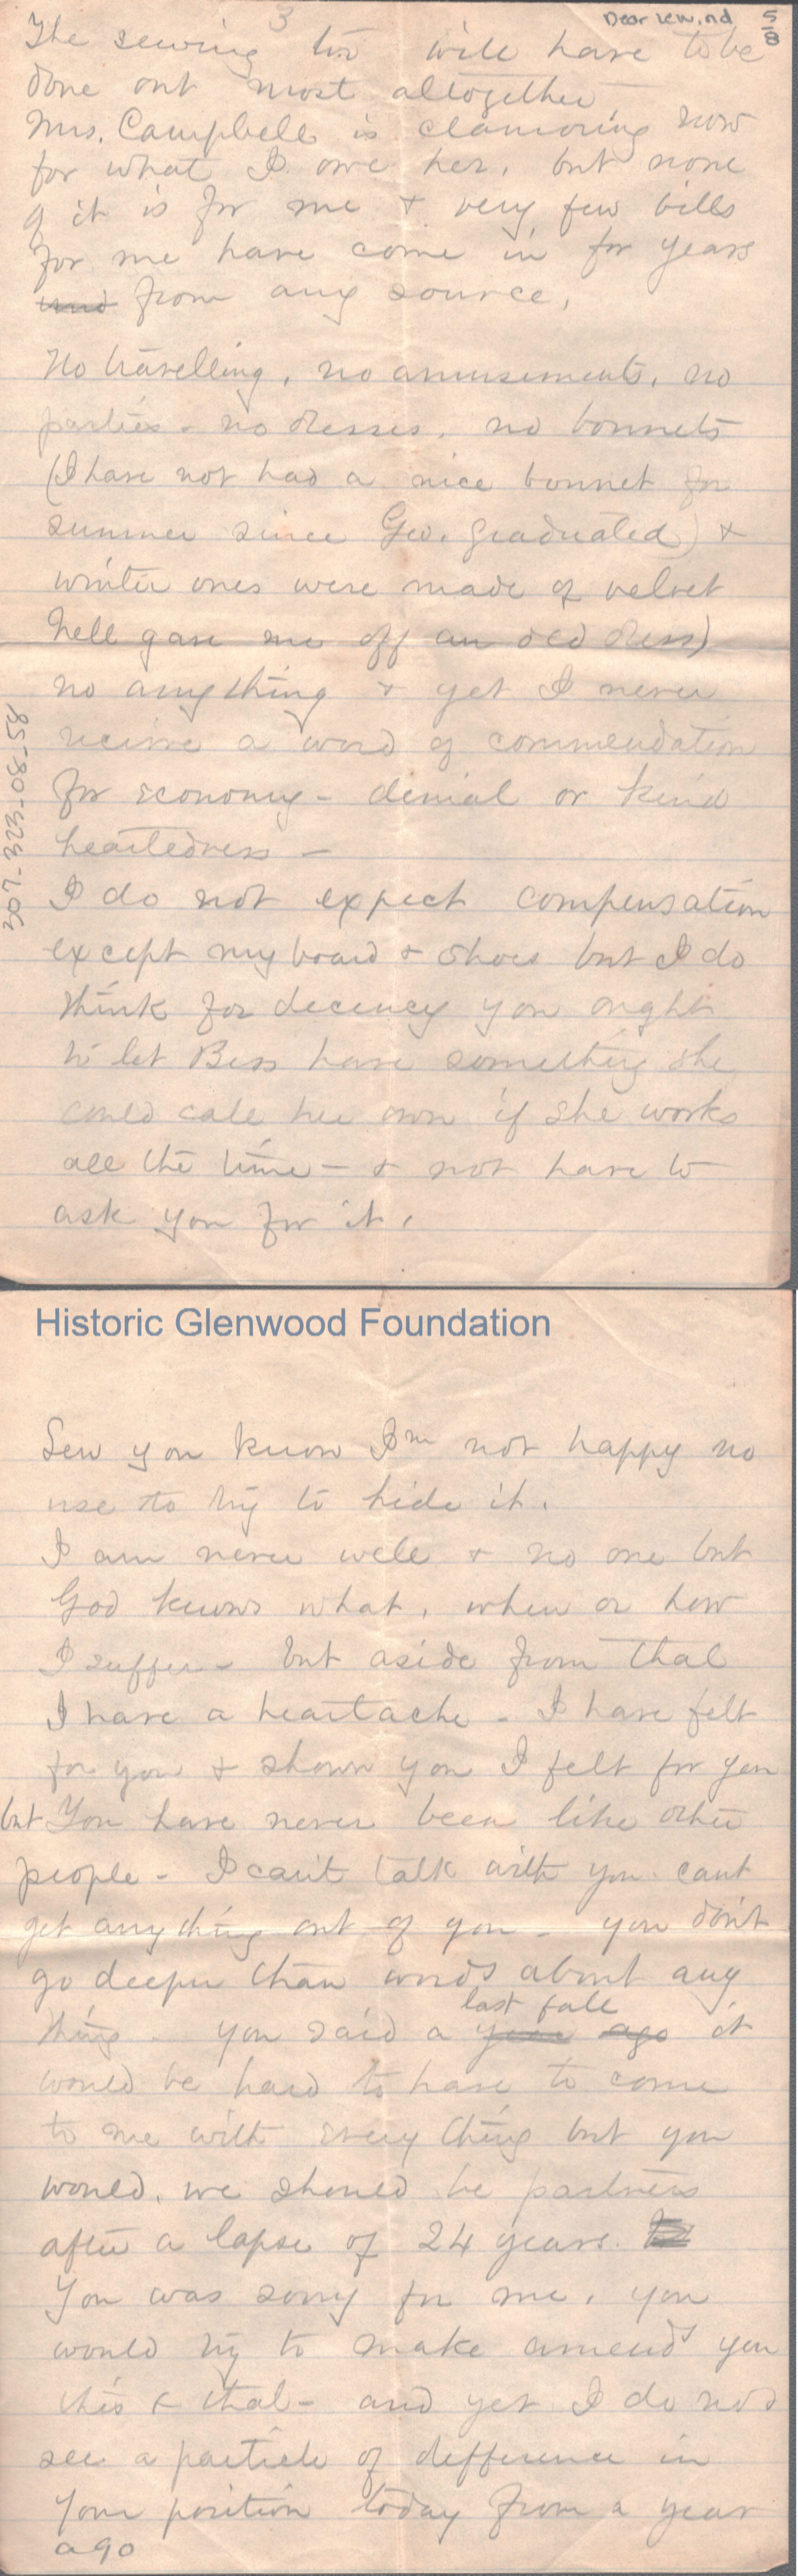 3
Dear Lew, nd 5/8
The sewing too will have to be
done out most altogether
Mrs. Campbell is clamoring now
for what I owe her, but none
of it is for me & very few bills
for me have come in for years
from any source,
No travelling, no amusements, no
parties - no dresses, no bonnets
(I have not had a nice bonnet for
summer since Geo. graduated) &
winter ones were made of velvet
Nell gave me off an old dress)
no anything & yet I never
receive a word of commendation
for economy - denial or kind
heartedness -
I do not expect compensation
except my board & shoes but I do
think for decency you ought
to let Bess have something she
could call her own if she works
all the time - & not have to
ask you for it,
307-323-08-58
Historic Glenwood Foundation
Lew you know I'm not happy no
use to try to hide it.
I am never well & no one but
God knows what, when or how
I suffer - but aside from that
I have a heartache - I have felt
for you & shown you I felt for you
but You have never been like other
people - I can't talk with you cant
get anything out of you - you don't
go deeper than words about any
last fall
thing - you said a year ago it
would be hard to have to come
to me with every thing but you
would, we should be partners
after a lapse of 24 years.
You was sorry for me, you
would try to make amends you
this & that - and yet I do not
see a particle of defference in
your position today from a year
ago